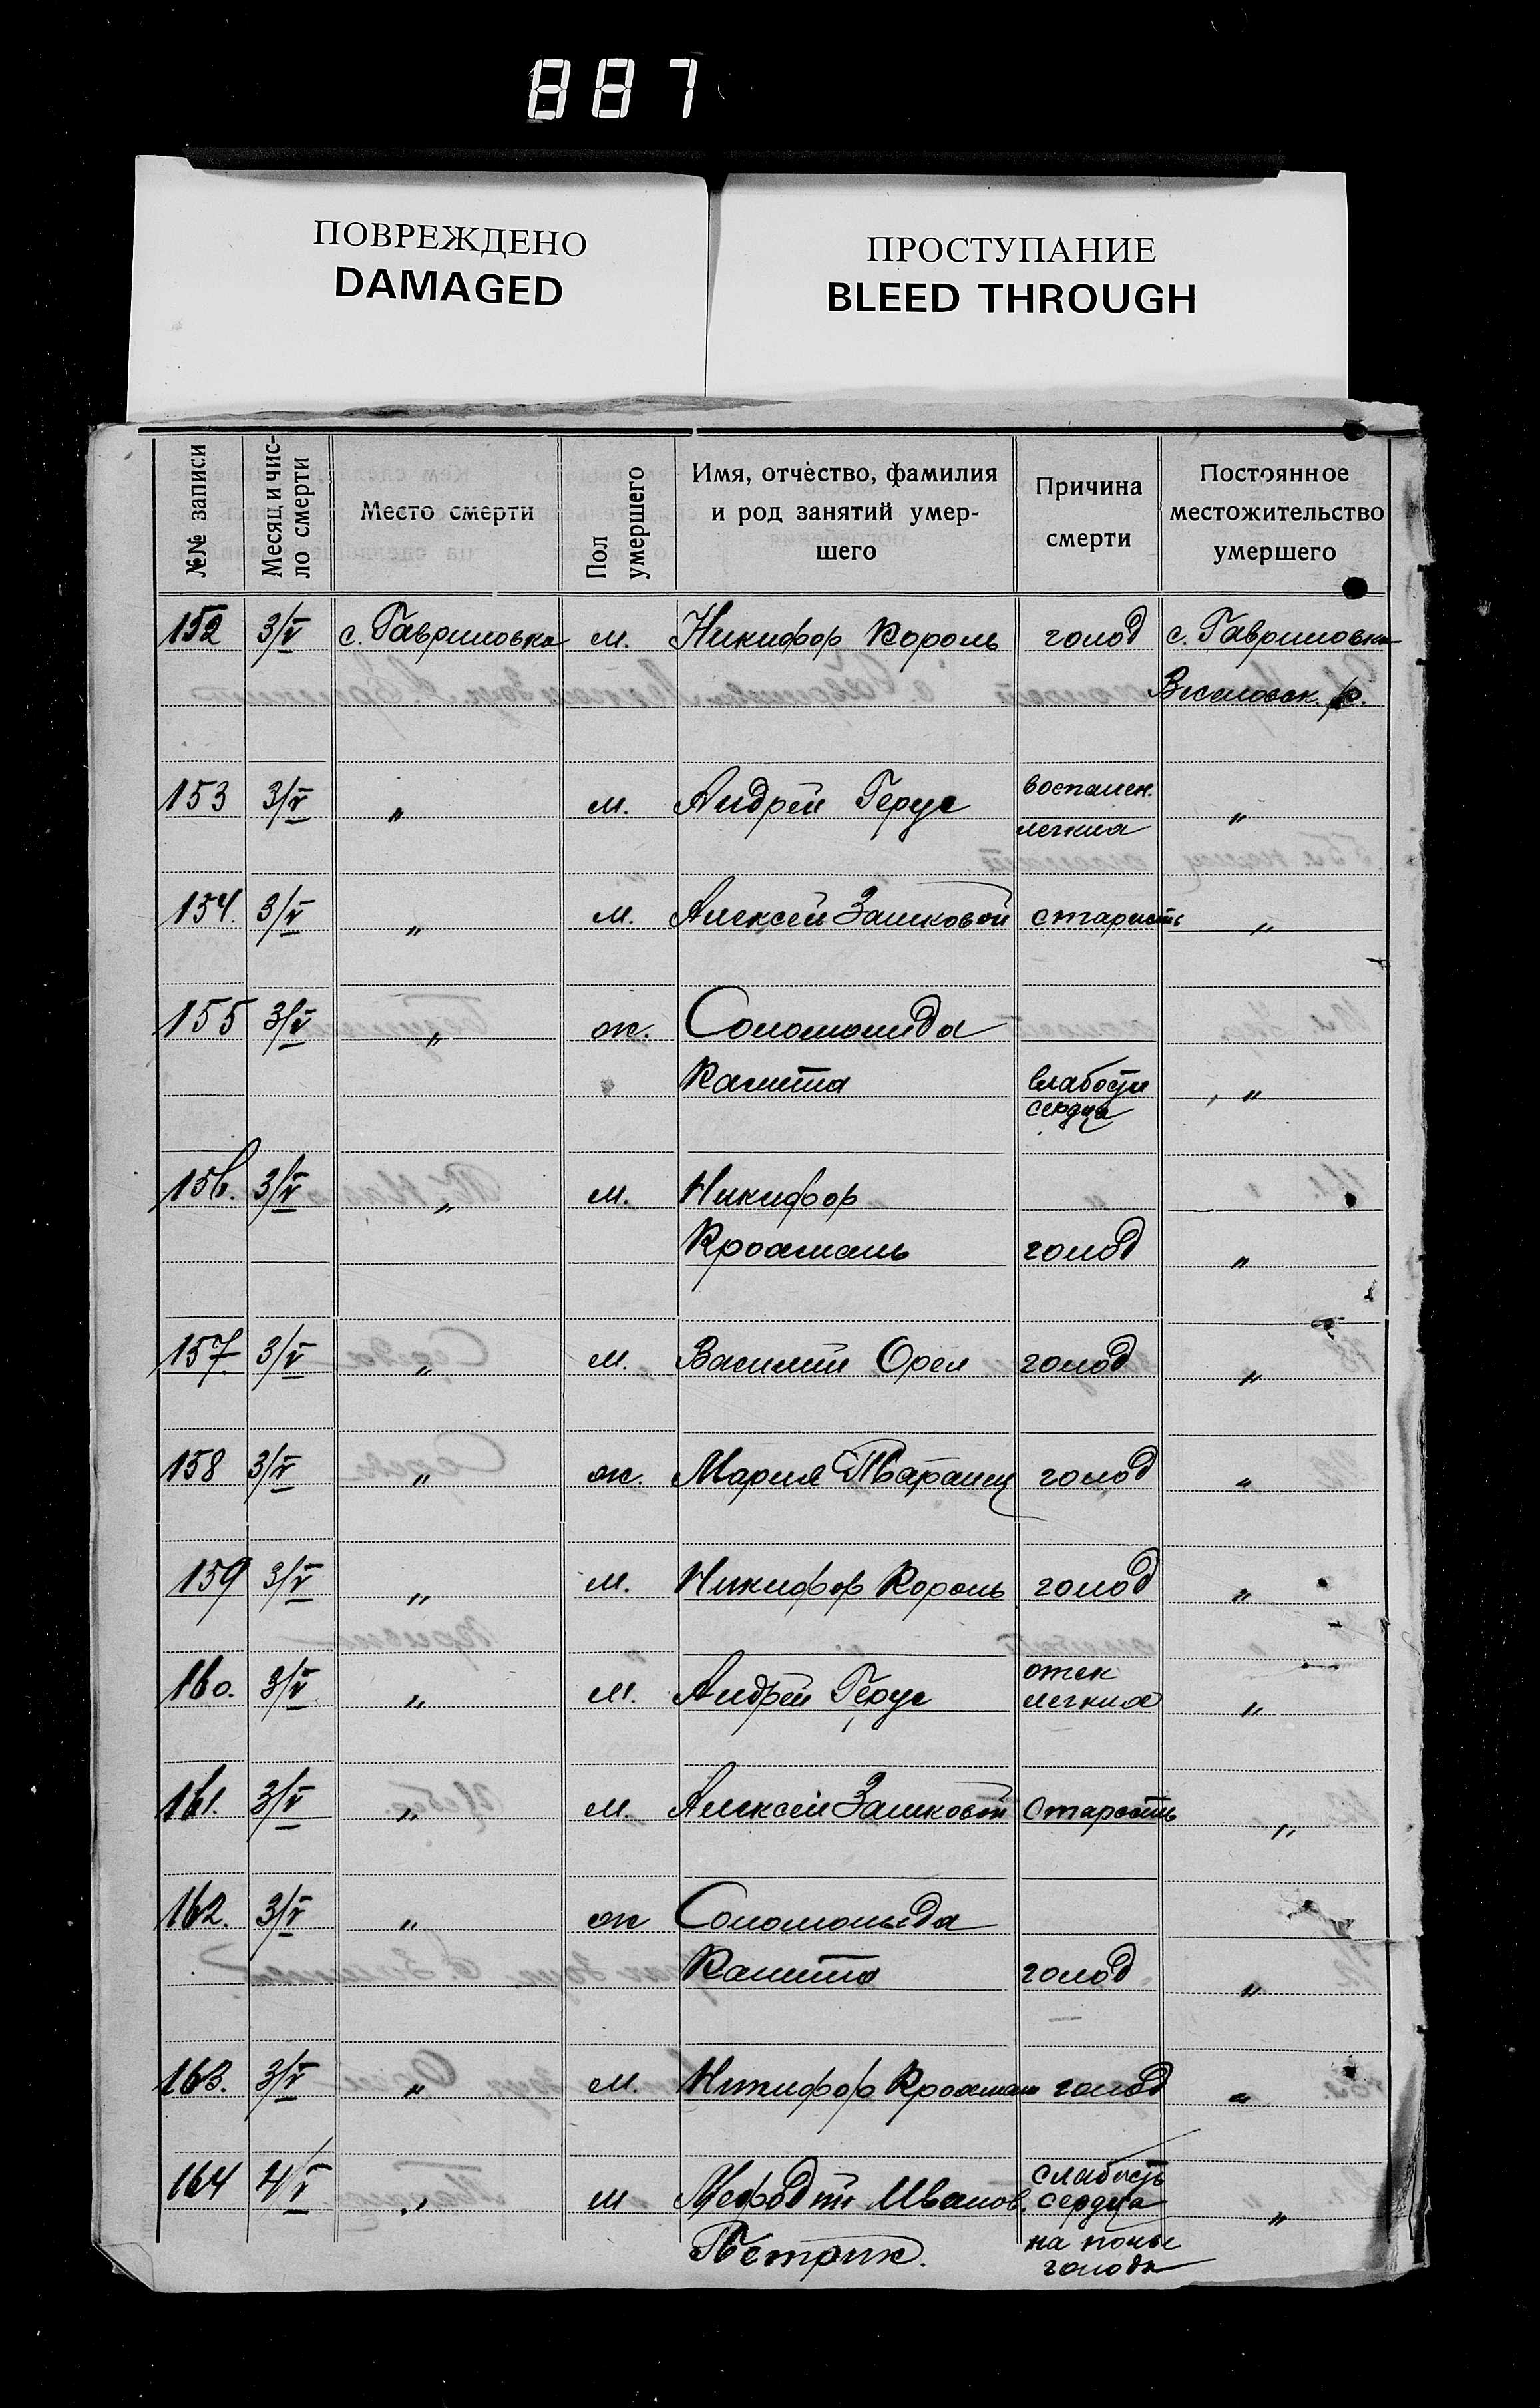 887
ПОВРЕЖДЕНО
DAMAGED
ПРОСТУПАНИЕ
BLEED THROUGH
№№ записи
Месяц и чис-
ло смерти
Место смерти
Пол
умершего
Имя, отчество, фамилия
и род занятий умер-
шего
Причина
смерти
Постоянное
местожительство
умершего
152 3/V с. Гавриловка м. Никифор Король голод с. Гавриловка
Веселовск. р.
153 3/V " м. Андрей Герус воспален. "
легких
154. 3/V " м. Алексей Замковой старость "
155 3/V " ж. Соломонида
Калита слабости "
сердца
156. 3/V " м. Никифор
Кроашань голод "
157. 3/V " м. Василий Орел голод "
158 3/V " ж. Мария голод "
159 3/V " м. Никифор Король голод "
160. 3/V " м. Андрей Герус отек "
легких
161. 3/V " м. Алексей Замковой Старость "
162. 3/V " ж Соломонида
Калита голод "
163. 3/V " м. Никифор голод "
164 4/V " м Мефодий Иванов. слабость "
сердца
Петрик. на почве
голода